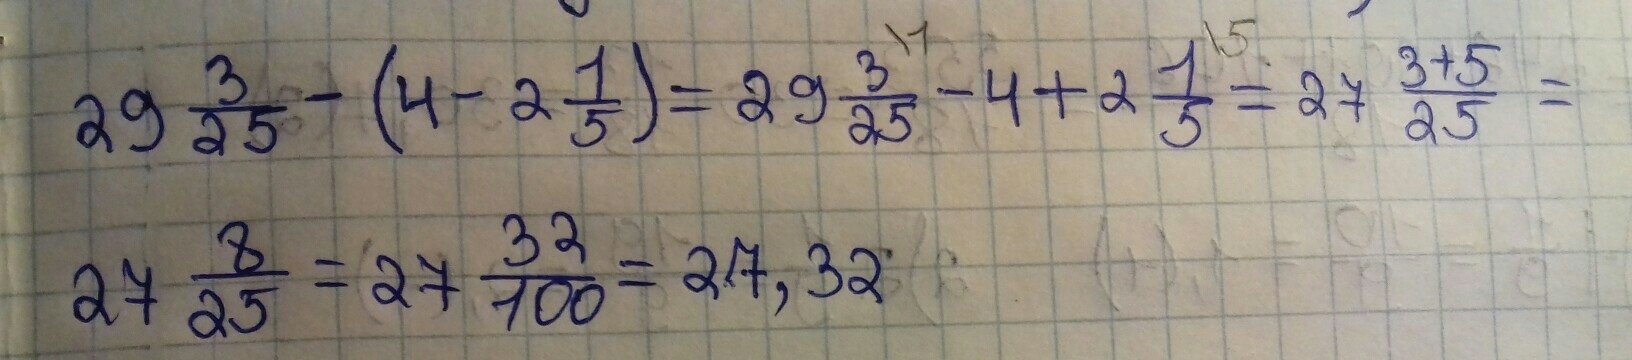 29 3/25 - (4 - 2 1/5) = 29 3/25 \1 - 4 + 2 1/5 \5 = 27 3+5/25 =
27 8/25 = 27 32/100 = 27,32